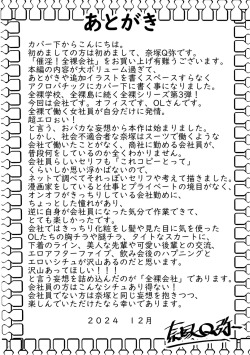 あとがき
カバー下からこんにちは。
初めましての方は初めまして、奈塚Q弥です。
「催淫!全裸会社」をお買い上げ有難うございます。
本編の内容が大ボリューム過ぎて
あとがきや追加イラストを書くスペースすらなく
アクロバチックにカバー下に書く事になりました。
全裸学校、全裸島に続く全裸シリーズ第3弾!
今回は会社です。オフィスです。OLさんです。
全裸で働く女社員が自分だけに発情。
超エロぉい!
と言う、おバカな妄想から本作は始まりました。
しかし、社会不適合者な奈塚はスーツで働くような
会社で働いたことがなく、商社に勤める会社員が、
普段何をしているのか全くわかりません。
会社員らしいセリフも「これコピーとって」
くらいしか思い浮かばないので、
ネットで調べてそれっぽいセリフや考えて描きました。
漫画家をしていると仕事とプライベートの境目がなく、
オンオフがきっちりしている会社勤めに、
ちょっとした憧れがあり、
逆に自分が会社員になった気分で作業できて、
とても楽しかったです。
会社ではきっちり化粧をし髪や見た目に気を使った
OLたちの胸チラや腿チラ、タイトなスカートに、
下着のライン、美人な先輩や可愛い後輩との交流、
エロアフターファイブ、飲み会後のハプニングと
エロいシチュが沢山あるのだと思います。
沢山あってほしい!!!!
と言う妄想を詰め込んだのが「全裸会社」であります。
会社員の方はこんなシチュあり得ない!
会社員でない方は奈塚と同じ妄想を抱きつつ、
楽しんでいただけたなら幸いです。
2024 12月
奈塚Q弥